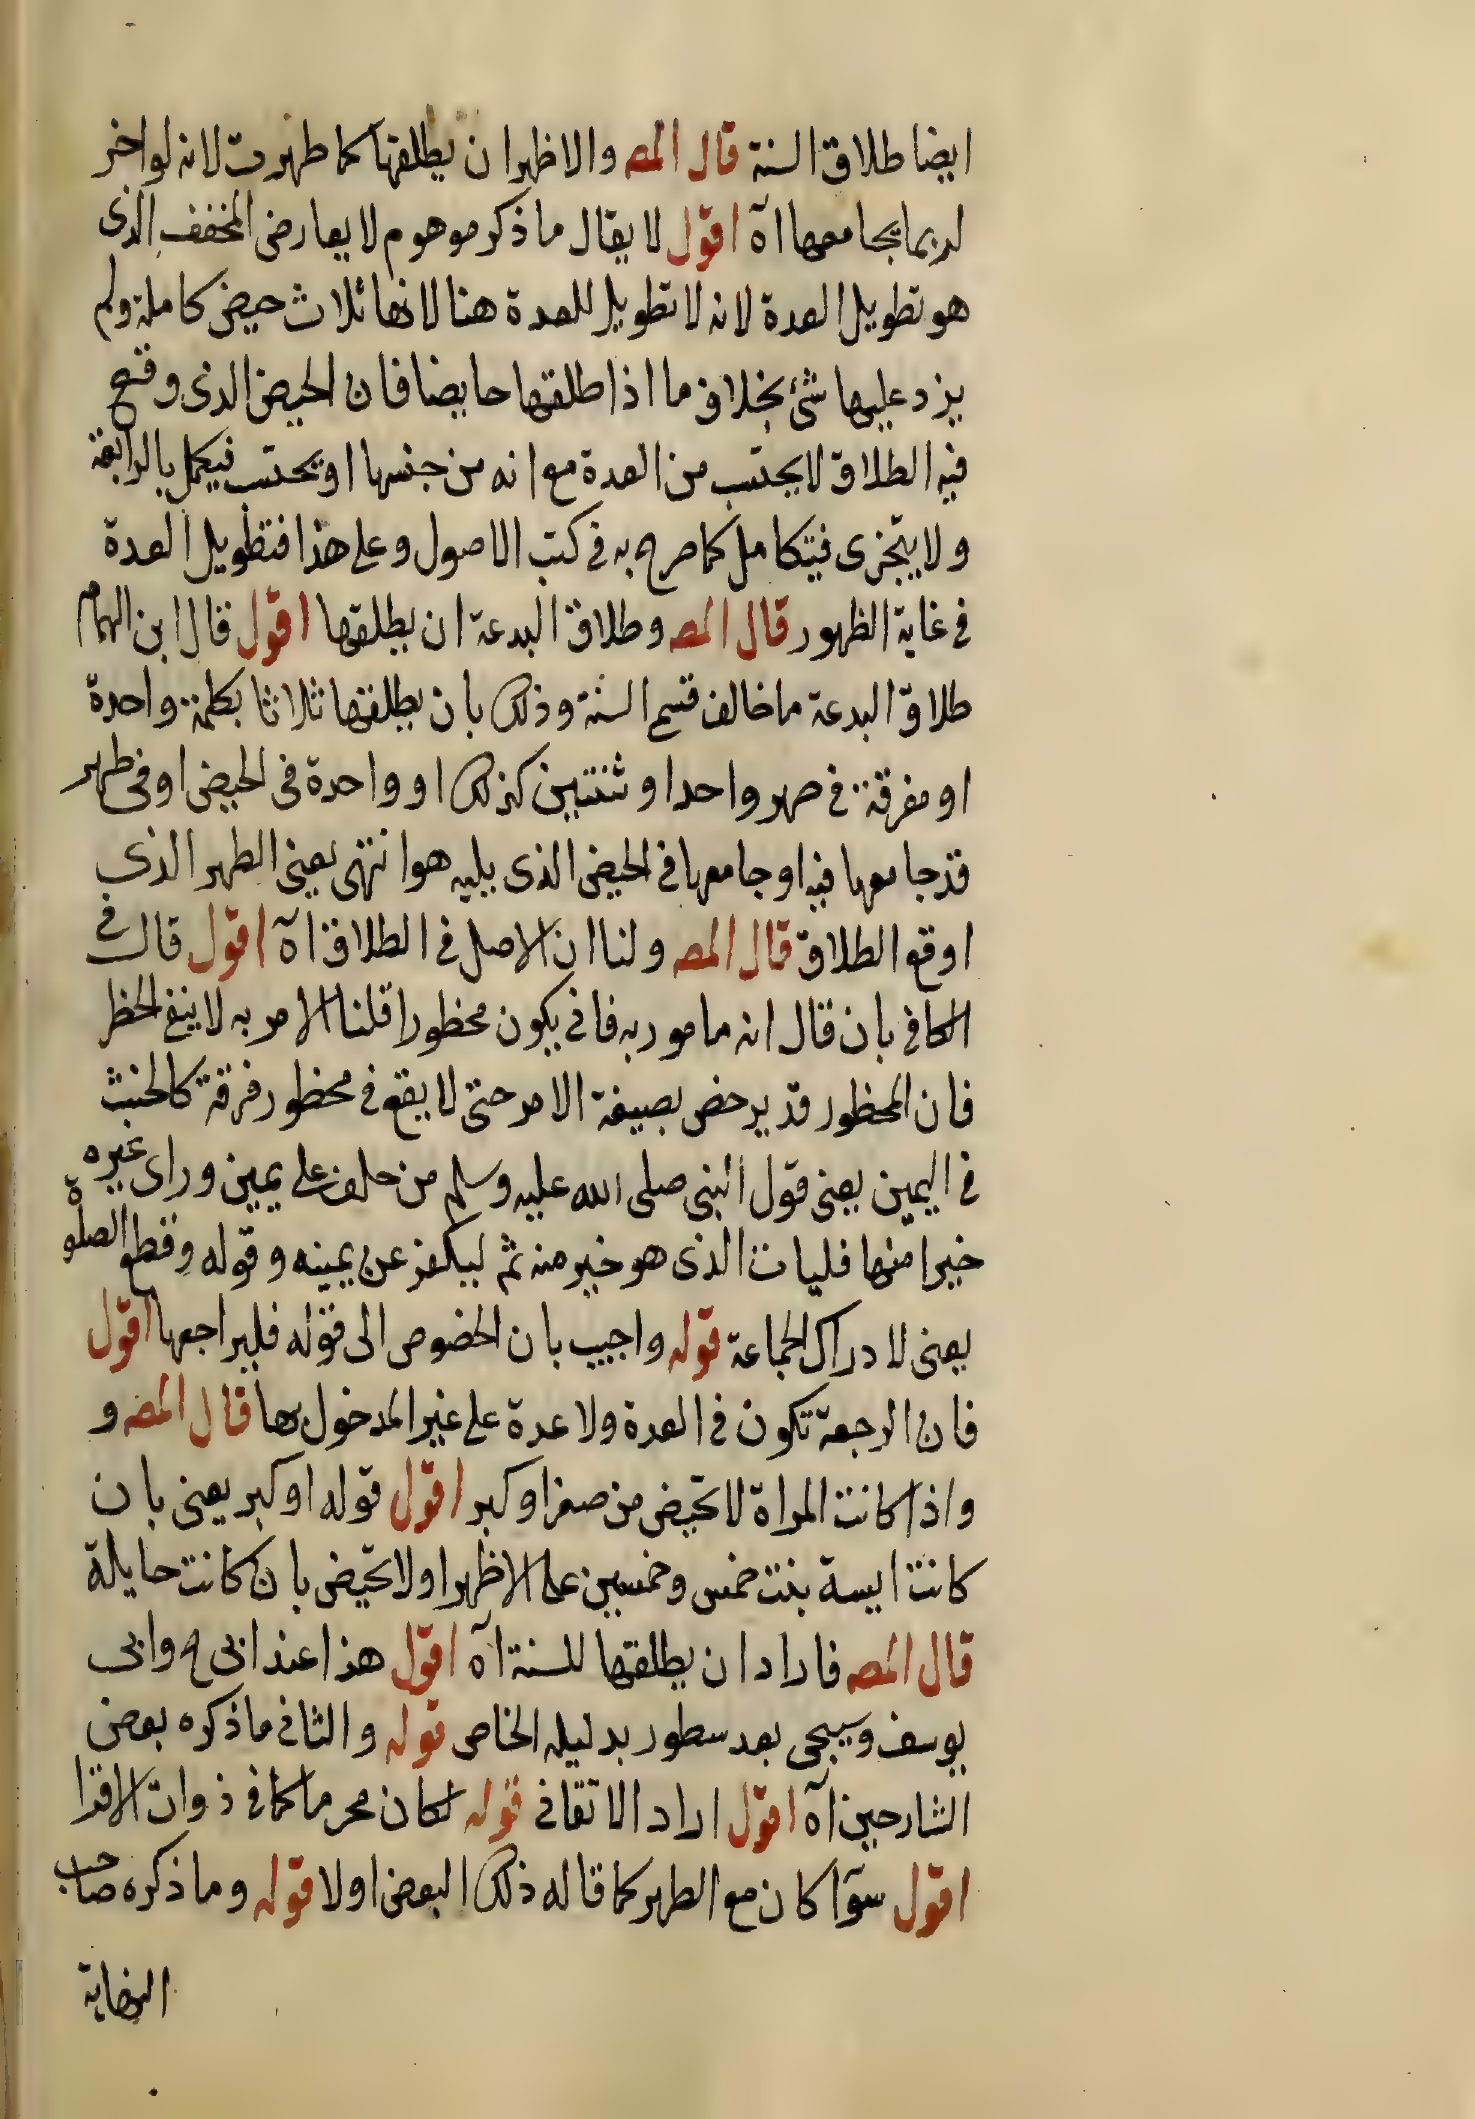 ايضا طلاق السنة قال المص والاظهر ان يطلقها كما طهرت لانه لو اخر
لربما يجامعها اه اقول لا يقال ما ذكر موهوم لا يعارض المخفف الذى
هو تطويل العدة لانه لا تطويل للعدة هنا لانها ثلاث حيض كاملة ولم
يزد عليها شئ بخلاف ما اذا طلقها حايضا فان الحيض الذى وقع
فيه الطلاق لا يحتسب من العدة مع انه من جنسها او يحتسب فيكمل بالرابعة
ولا يتجزى فيتكامل كما صرح به فى كتب الاصول وعلى هذا فتطويل العدة
فى غاية الظهور قال المص وطلاق البدعة ان يطلقها اقول قال ابن الهمام
طلاق البدعة ما خالف قسم السنة وذلك بان يطلقها ثلاثا بكلمة واحدة
او مفرقة فى طهر واحد او ثنتين كذلك او واحدة فى الحيض او فى طهر
قد جامعها فيه او جامعها فى الحيض الذى يليه هو انتهى يعنى الطهر الذى
اوقع الطلاق قال المص ولنا ان الاصل فى الطلاق اه اقول قال فى
الكافى بان قال انه مامور به فانى يكون محظورا قلنا الامر به لا ينفى الحظر
فان المحظور قد يرخص بصيغة الامر حتى لا يقع فى محظور فرقة كالحنث
فى اليمين يعنى قول النبى صلى الله عليه وسلم من حلف على يمين وراى غيره
خيرا منها فليات الذى هو خير منه ثم ليكفر عن يمينه وقوله وقطع الصلوة
يعنى لادراك الجماعة قوله واجيب بان الخصوص الى قوله فليراجعها اقول
فان الرجعة تكون فى العدة ولا عدة على غير المدخول بها قال المص و
واذا كانت المراة لا تحيض من صغر او كبر اقول قوله او كبر يعنى بان
كانت ايسة بنت خمس وخمسين على الاظهر او لا تحيض بان كانت حايلة
قال المص فاراد ان يطلقها للسنة اه اقول هذا عند ابى ح وابى
يوسف وسيجى بعد سطور بدليله الخاص قوله والثانى ما ذكره بعض
الشارحين اه اقول اراد الاتقانى قوله لكان محرما كما فى ذوات الاقرا
اقول سوآ كان مع الطهر كما قاله ذلك البعض اولا قوله وما ذكره صاحب
النهاية